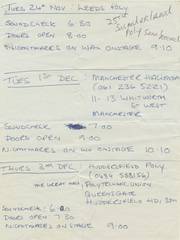 TUES 24th NOV LEEDS POLY
SOUNDCHECK 6.30
DOORS OPEN 8.00
NIGHTMARES ON WAX ONSTAGE 9.10
25th Sunderland
Poly
TUES 1st DEC
MANCHESTER HACIENDA
(061 236 5051)
11-13 WHITWORTH
ST WEST
MANCHESTER
SOUNDCHECK 7.00
DOORS OPEN 9.00
NIGHTMARES ON WAX ONSTAGE 10.10
THURS 3rd DEC
HUDDERSFIELD POLY
(0484 538156)
THE GREAT HALL
POLYTECHNIC UNION
QUEENSGATE
HUDDERSFIELD HD1
SOUNDCHECK 6.
DOORS OPEN 7.30
NIGHTMARES ON WAX ONSTAGE 9.00